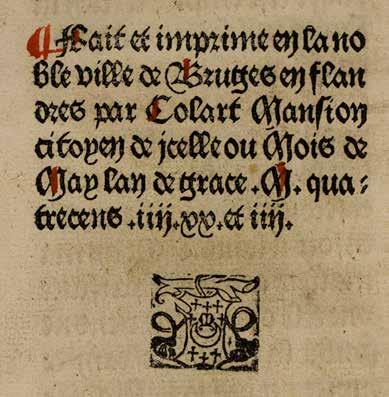 ¶ Fait et imprime en la no
ble ville de Bruges en flan
dres par Colart Mansion
citoyen de jcelle ou Mois de
May lan de grace .M. qua⸗
trecens .iiij.xx. et iiij.